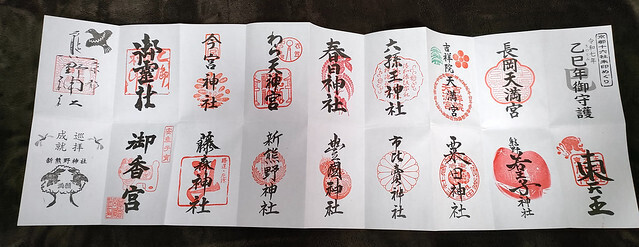 京都十六社朱印めぐり
令和七年
乙巳年御守護
東天王
長岡天満宮
熊野
若王子
神社
吉祥院
天満宮
粟田神社
六孫王神社
市比賣神社
春日神社
豊國神社
わら天神宮
新熊野神社
今宮神社
藤森神社
御靈社
御香宮
巡拝
成就
新熊野神社
満願